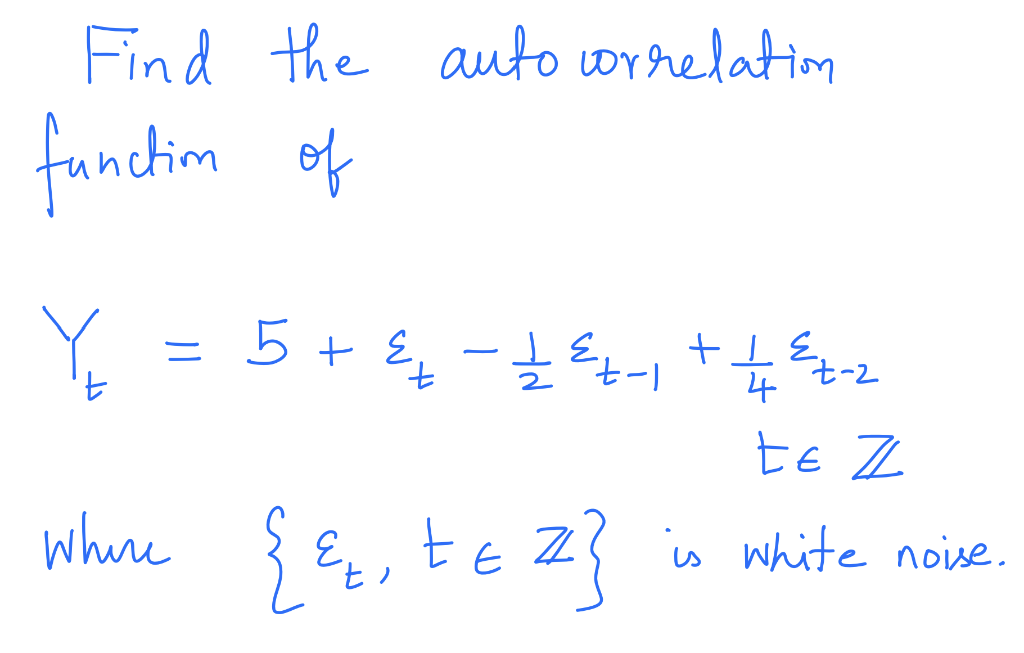 Find the autocorrelation
function of
Y_t = 5 + ε_t - 1/2 ε_{t-1} + 1/4 ε_{t-2}
t ∈ ℤ
where {ε_t, t ∈ ℤ} is white noise.